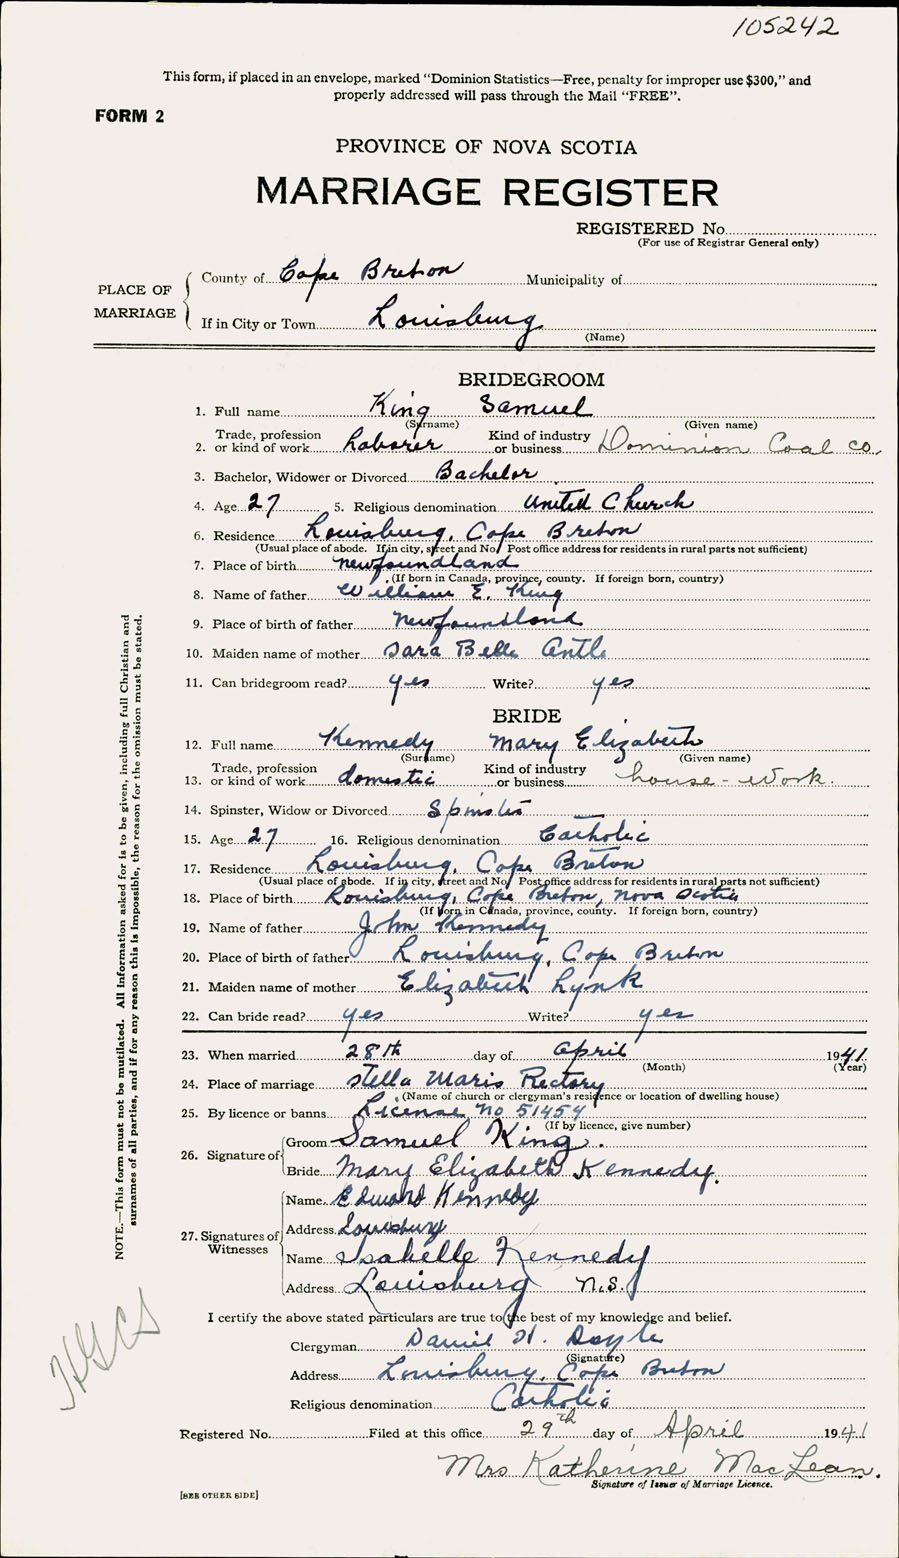 105242
This form, if placed in an envelope, marked “Dominion Statistics—Free, penalty for improper use $300,” and
properly addressed will pass through the Mail “FREE”.
FORM 2
PROVINCE OF NOVA SCOTIA
MARRIAGE REGISTER
REGISTERED No.
(For use of Registrar General only)
PLACE OF MARRIAGE
County of Cape Breton Municipality of
If in City or Town Louisburg
(Name)
BRIDEGROOM
1. Full name King Samuel
(Surname) (Given name)
2. Trade, profession or kind of work Laborer Kind of industry or business Dominion Coal Co.
3. Bachelor, Widower or Divorced Bachelor
4. Age 27 5. Religious denomination United Church
6. Residence Louisburg, Cape Breton
(Usual place of abode. If in city, street and No. Post office address for residents in rural parts not sufficient)
7. Place of birth newfoundland
(If born in Canada, province, county. If foreign born, country)
8. Name of father William E. King
9. Place of birth of father newfoundland
10. Maiden name of mother Sara Belle Antle
11. Can bridegroom read? yes Write? yes
BRIDE
12. Full name Kennedy Mary Elizabeth
(Surname) (Given name)
13. Trade, profession or kind of work domestic Kind of industry or business house-work.
14. Spinster, Widow or Divorced Spinster
15. Age 27 16. Religious denomination Catholic
17. Residence Louisburg, Cape Breton
(Usual place of abode. If in city, street and No. Post office address for residents in rural parts not sufficient)
18. Place of birth Louisburg, Cape Breton, Nova Scotia
(If born in Canada, province, county. If foreign born, country)
19. Name of father John Kennedy
20. Place of birth of father Louisburg, Cape Breton
21. Maiden name of mother Elizabeth Lynk
22. Can bride read? yes Write? yes
23. When married 28th day of April 1941
(Month) (Year)
24. Place of marriage Stella Maris Rectory
(Name of church or clergyman's residence or location of dwelling house)
25. By licence or banns License no 51454
(If by licence, give number)
26. Signature of Groom Samuel King.
Bride Mary Elizabeth Kennedy.
27. Signatures of Witnesses
Name Edward Kennedy
Address Louisburg
Name Isabelle Kennedy
Address Louisburg N.S.
I certify the above stated particulars are true to the best of my knowledge and belief.
Clergyman Daniel H. Doyle
(Signature)
Address Louisburg, Cape Breton
Religious denomination Catholic
Registered No. Filed at this office 29th day of April 1941
Mrs Katherine MacLean.
Signature of Issuer of Marriage Licence.
[SEE OTHER SIDE]
NOTE.—This form must not be mutilated. All information asked for is to be given, including full Christian and
surnames of all parties, and if for any reason this is impossible, the reason for the omission must be stated.